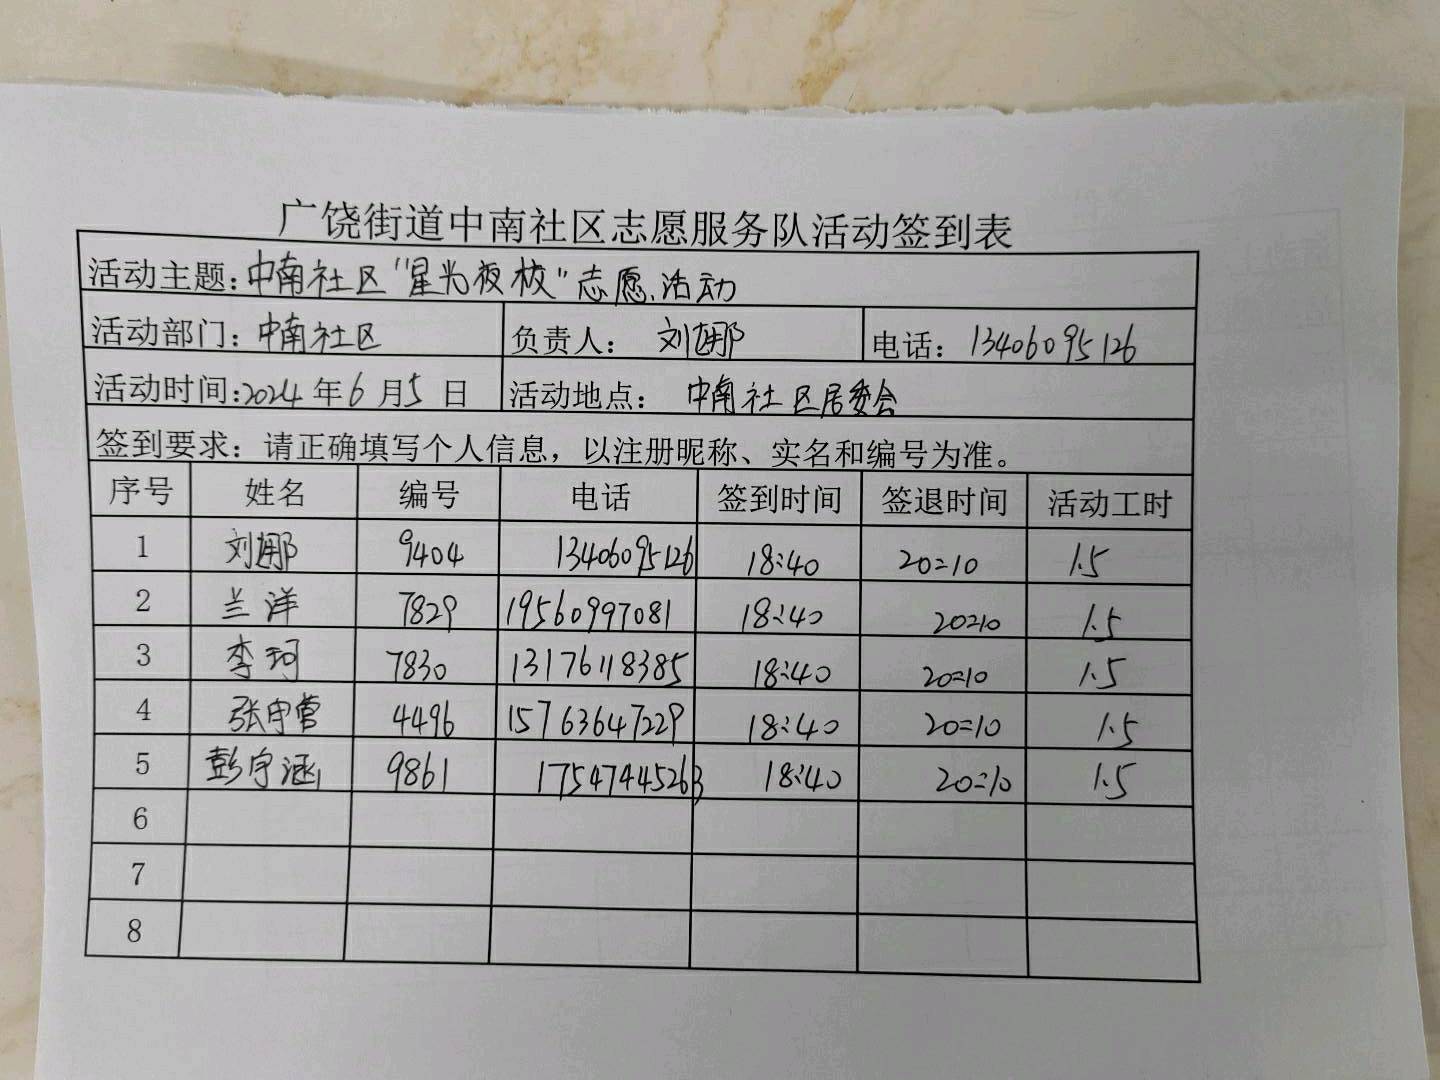 广饶街道中南社区志愿服务队活动签到表
活动主题：中南社区“星光夜校”志愿活动
活动部门：中南社区 负责人： 刘娜 电话：13406095126
活动时间：2024年6月5日 活动地点： 中南社区居委会
签到要求：请正确填写个人信息，以注册昵称、实名和编号为准。
序号 姓名 编号 电话 签到时间 签退时间 活动工时
1 刘娜 9404 13406095126 18:40 20:10 1.5
2 兰洋 7829 19560997081 18:40 20:10 1.5
3 李珂 7830 13176118385 18:40 20:10 1.5
4 4496 15763647229 18:40 20:10 1.5
5 彭宇涵 9861 17547445263 18:40 20:10 1.5
6
7
8